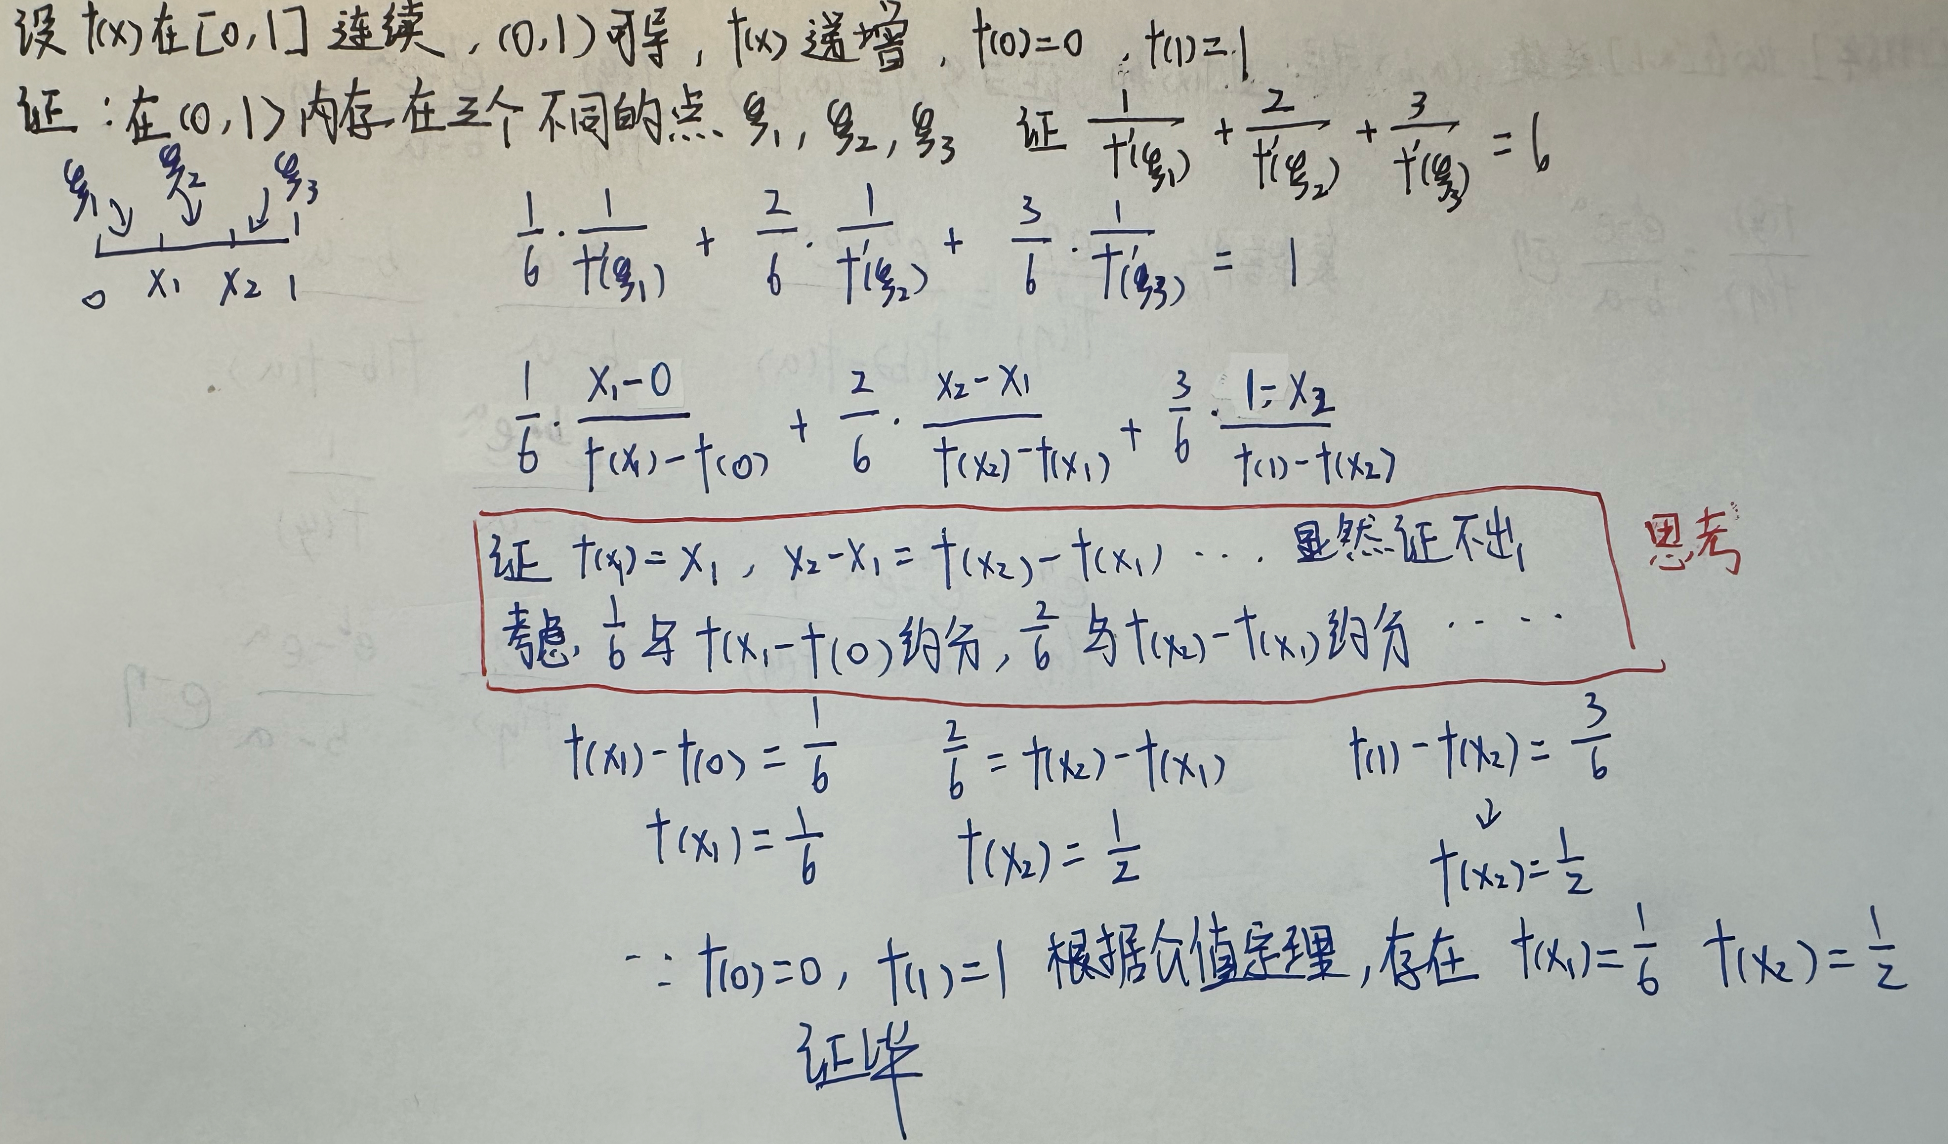 设 f(x) 在 [0,1] 连续，(0,1) 可导，f(x) 递增，f(0)=0，f(1)=1
证：在 (0,1) 内存在三个不同的点 ξ₁, ξ₂, ξ₃ 证 1/f'(ξ₁) + 2/f'(ξ₂) + 3/f'(ξ₃) = 6
ξ₁ ξ₂ ξ₃
0 x₁ x₂ 1
1/6 · 1/f'(ξ₁) + 2/6 · 1/f'(ξ₂) + 3/6 · 1/f'(ξ₃) = 1
1/6 · (x₁-0)/(f(x₁)-f(0)) + 2/6 · (x₂-x₁)/(f(x₂)-f(x₁)) + 3/6 · (1-x₂)/(f(1)-f(x₂))
证 f(x₁)=x₁, x₂-x₁=f(x₂)-f(x₁) ···. 显然证不出, 思考
考虑, 1/6 与 f(x₁-f(0) 约分, 2/6 与 f(x₂)-f(x₁) 约分 ·····
f(x₁)-f(0)=1/6 2/6=f(x₂)-f(x₁) f(1)-f(x₂)=3/6
↓
f(x₁)=1/6 f(x₂)=1/2 f(x₂)=1/2
∵ f(0)=0, f(1)=1 根据介值定理, 存在 f(x₁)=1/6 f(x₂)=1/2
证毕